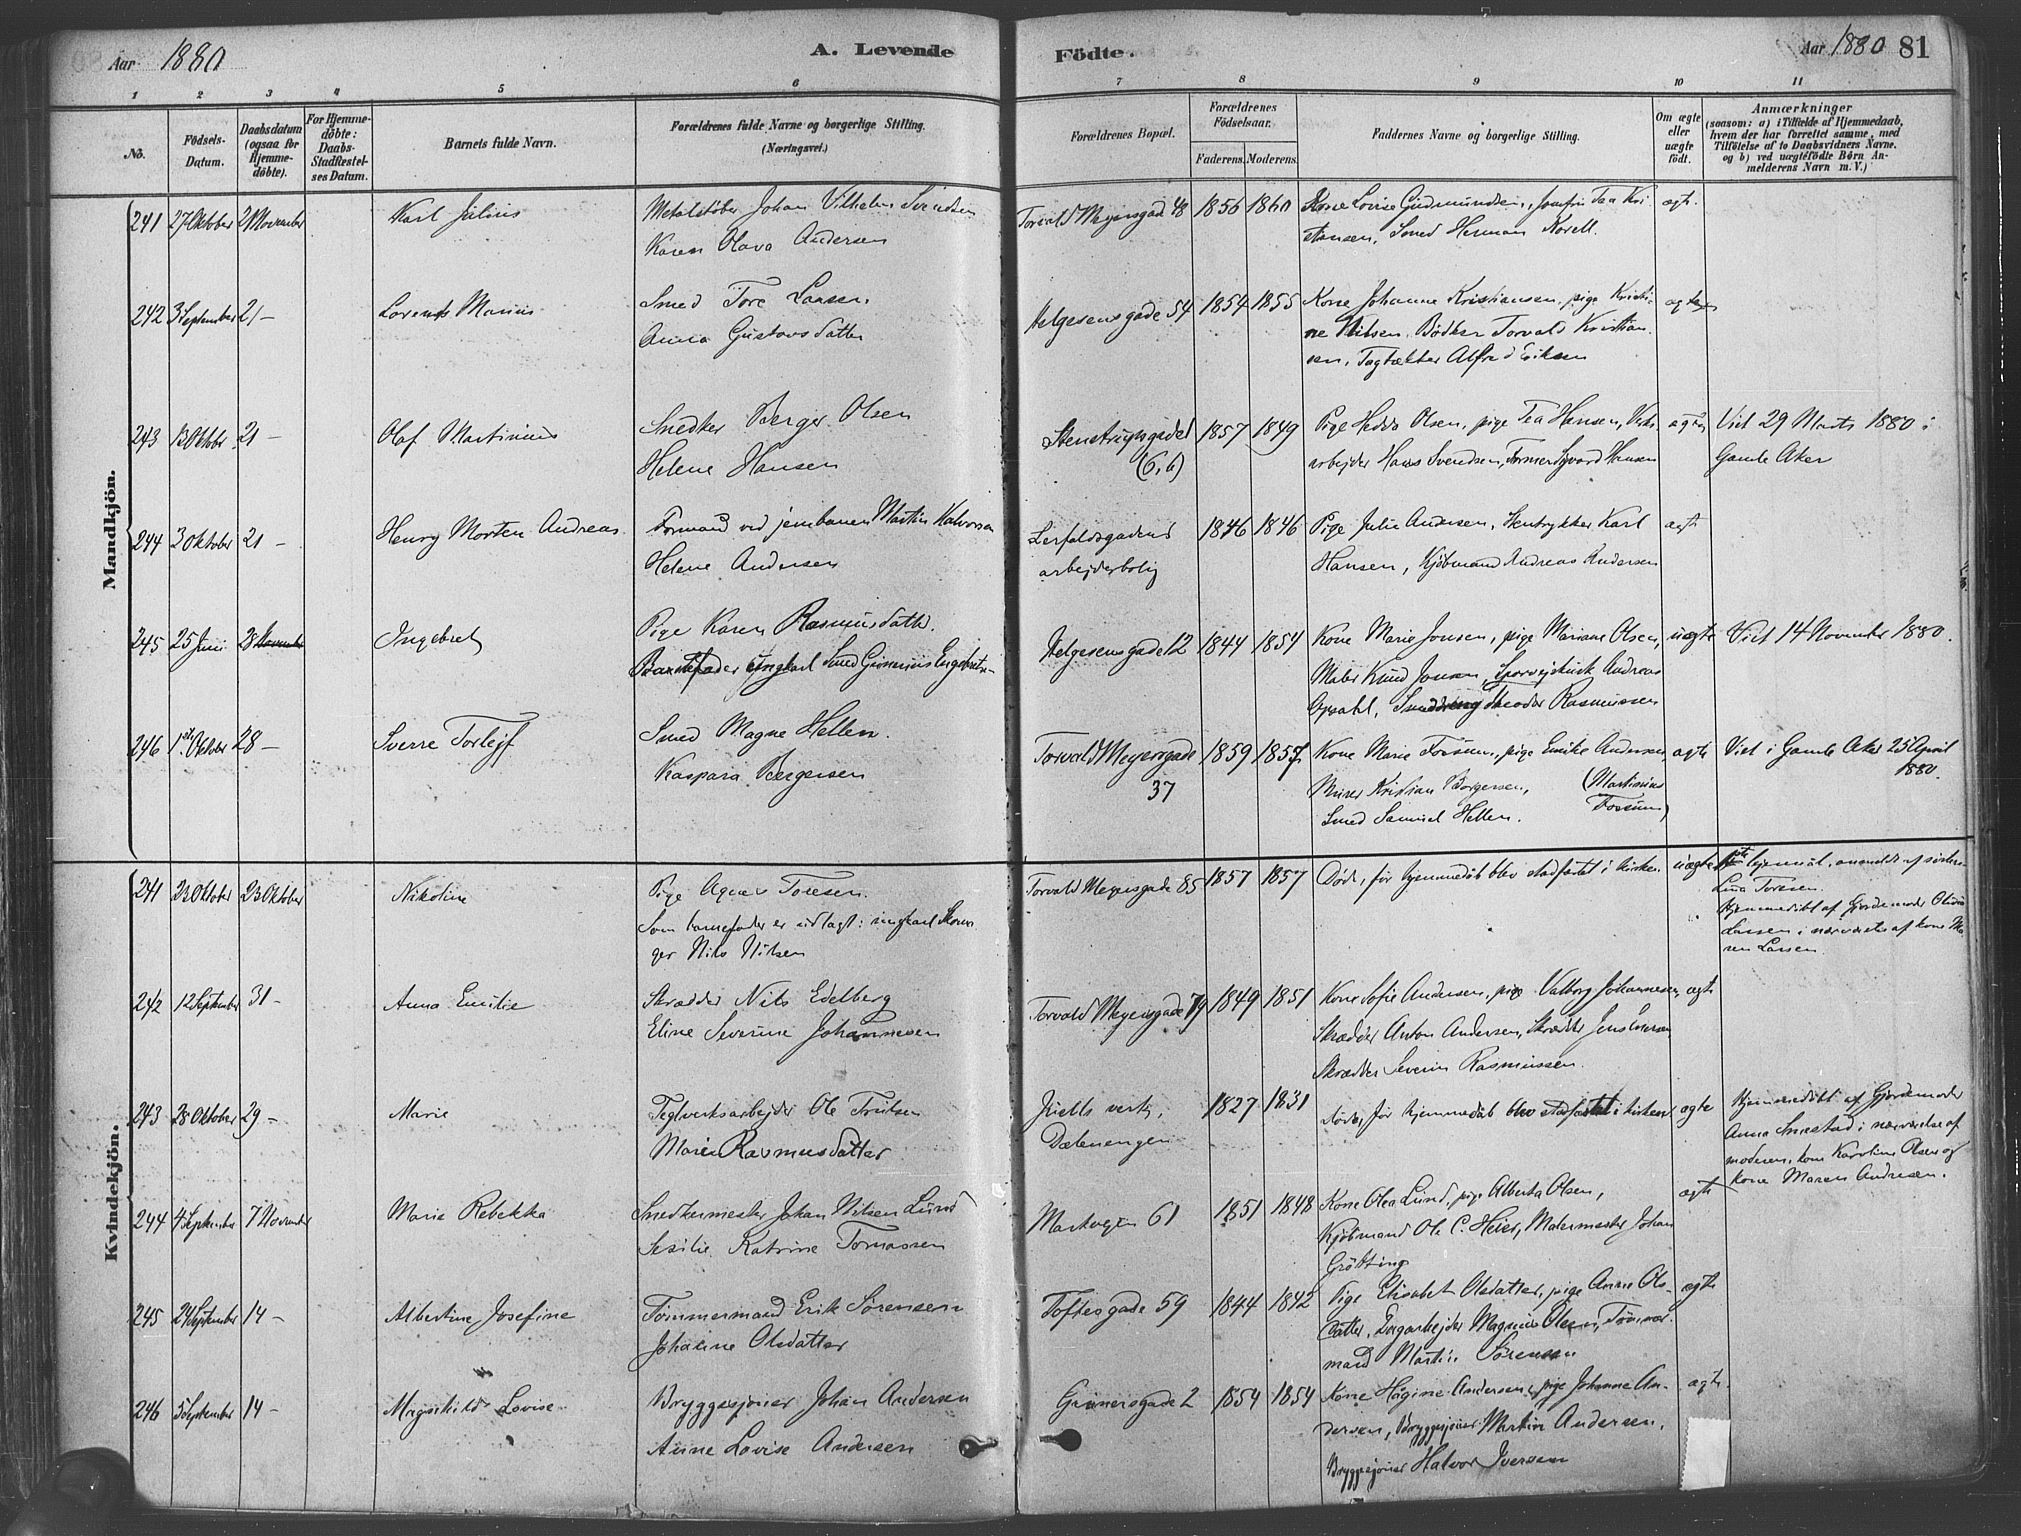 Aar 1880
A. Levende
Födte.
Aar 1880 81
1 2 3 4 5 6 7 8 9 10 11
No.
Födsels-
Datum.
Daabsdatum
(ogsaa for
Hjemme-
döbte).
For Hjemme-
döbte:
Daabs-
Stadfæstel-
ses Datum.
Barnets fulde Navn.
Forældrenes fulde Navne og borgerlige Stilling.
(Næringsvei.)
Forældrenes Bopæl.
Forældrenes
Födselsaar.
Faderens. Moderens.
Faddernes Navne og borgerlige Stilling.
Om ægte
eller
uægte
födt.
Anmærkninger
(saasom: a) i Tilfælde af Hjemmedaab,
hvem der har forrettet samme, med
Tilföielse af to Daabsvidners Navne.
og b) ved uægtefödte Börn An-
melderens Navn m. V.)
Mandkjön.
241 27 Oktober 21 November Karl Julius
Metalstøber Johan Vilhelm Svendsen
Karen Olava Andersen
Torvald Meyersgade 48 1856 1860
Kone Lovise Gudmundsen, Josefin Tea Kri
stansen, Smed Herman Korell.
ægte.
242 3 September 21 – Lorents Marius
Smed Tore Larsen.
Anna Gustavsdatter
Helgesensgade 54 1854 1855
Kone Johanne Kristiansen, pige Kristi-
ne Nilsen, Bødker Torvald Kristian-
sen, Tagtækker Alfred Eriksen
ægte
243 13 Oktober 21 – Olaf Martinius
Snedker Berger Olsen
Helene Hansen
Stenstrupsgade 1
(6,b)
1857 1849
Pige Hedda Olsen, pige Tea Hansen, Verks-
arbejder Hans Svendsen, Former Syvard Hansen
ægte
Viet 29 Marts 1880 i
Gamle Aker
244 3 Oktober 21 – Henry Morten Andreas
Formand ved jernbanen Martin Halvorsen
Helene Andersen
Lerfaldsgadens
arbejderbolig
1846 1846
Pige Julie Andersen, Stentrykker Karl
Hansen, Kjøbmand Andreas Andersen
ægte
245 25 Juni 28 November Ingebret
Pige Karen Rasmusdatter.
Barnefader ungkarl Smed Gunerius Engebretsen
Helgesensgade 12 1844 1854
Kone Marie Jonsen, pige Mariane Olsen,
Maler Knud Jonsen, Sporvejskusk Andreas
Opsahl, Smeddreng Theodor Rasmussen
uægte
Viet 14 November 1880.
246 1st Oktober 28 – Sverre Torlejf
Smed Magne Hellen.
Kaspara Bergersen
Torvald Meyersgade
37
1859 1857
Kone Marie Fossum, pige Emilie Andersen,
Murer Kristian Borgersen, (Martinius
Smed Samuel Hellen. Fossum)
ægte
Viet i Gamle Aker 25 April
1880.
Kvindekjön.
241 23 Oktober 23 Oktober Nikoline
Pige Agnes Toresen.
Som barnefader er udlagt: ungkarl Skoma
ger Nils Nilsen
Torvald Meyersgade 85 1857 1857
Døde, før hjemmedåb blev stadfæstet i kirken
uægte
lejermål, anmeldt af søster
Lina Toresen.
Hjemmedøbt af Gjordemoder Olivia
Larsen i nærværelse af kone Ma
ren Larsen
242 12 September 31 – Anna Emilie
Skrædder Nils Edelberg
Eline Severine Johannesen
Torvald Meyersgade 79 1849 1851
Kone Sofie Andersen, pige Valborg Johannesen,
Skrædder Anton Andersen, Skrædder Jens Iversen,
Skrædder Severin Rasmussen.
ægte
243 28 Oktober 29 – Marie
Teglverksarbejder Ole Trulsen
Maren Rasmusdatter
Jriells verk,
Dælenengen
1827 1831
Døde, før hjemmedåb blev stadfæstet i kirken
ægte
Hjemmedøbt af Gjordemoder
Anna Smestad i nærværelse af
moderen, kone Karoline Olsen og
kone Maren Andresen.
244 4 September 7 November Marie Rebekka
Snedkermester Johan Nilsen Lund
Sesilie Katrine Tomassen
Markvejen 61 1851 1848
Kone Olea Lund, pige Alberta Olsen,
Kjøbmand Ole C. Heier, Malermester Johan
Grøtting
ægte
245 24 September 14 – Albertine Josefine
Tømmermand Erik Sørensen
Johanne Olsdatter
Toftesgade 59 1844 1842
Pige Elisabet Olsdatter, pige Anne Ols-
datter, Dagarbejder Magnus Olsen, Tømmer-
mand Martin Sørensen
ægte
246 5 September 14 – Magnhild Lovise
Bryggesjouer Johan Andersen
Anne Lovise Andersen
Grünersgade 2 1854 1854
Kone Hagine Andersen, pige Johanne An-
dersen, Bryggesjouer Martin Andersen,
Bryggesjouer Halvor Iversen
ægte